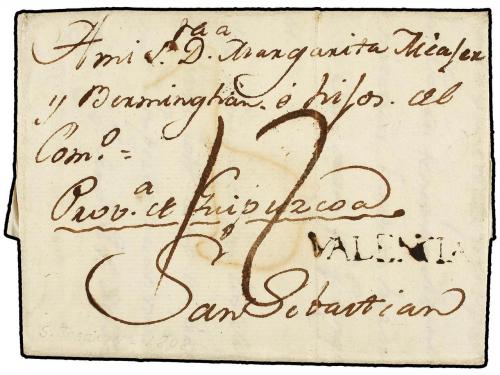 A mi S.ra D.a Margarita Micaser
y Bermingham é hijos. del
Com.o =
Prov.a de Guipuzcoa
12
VALENCIA
San Sebastian